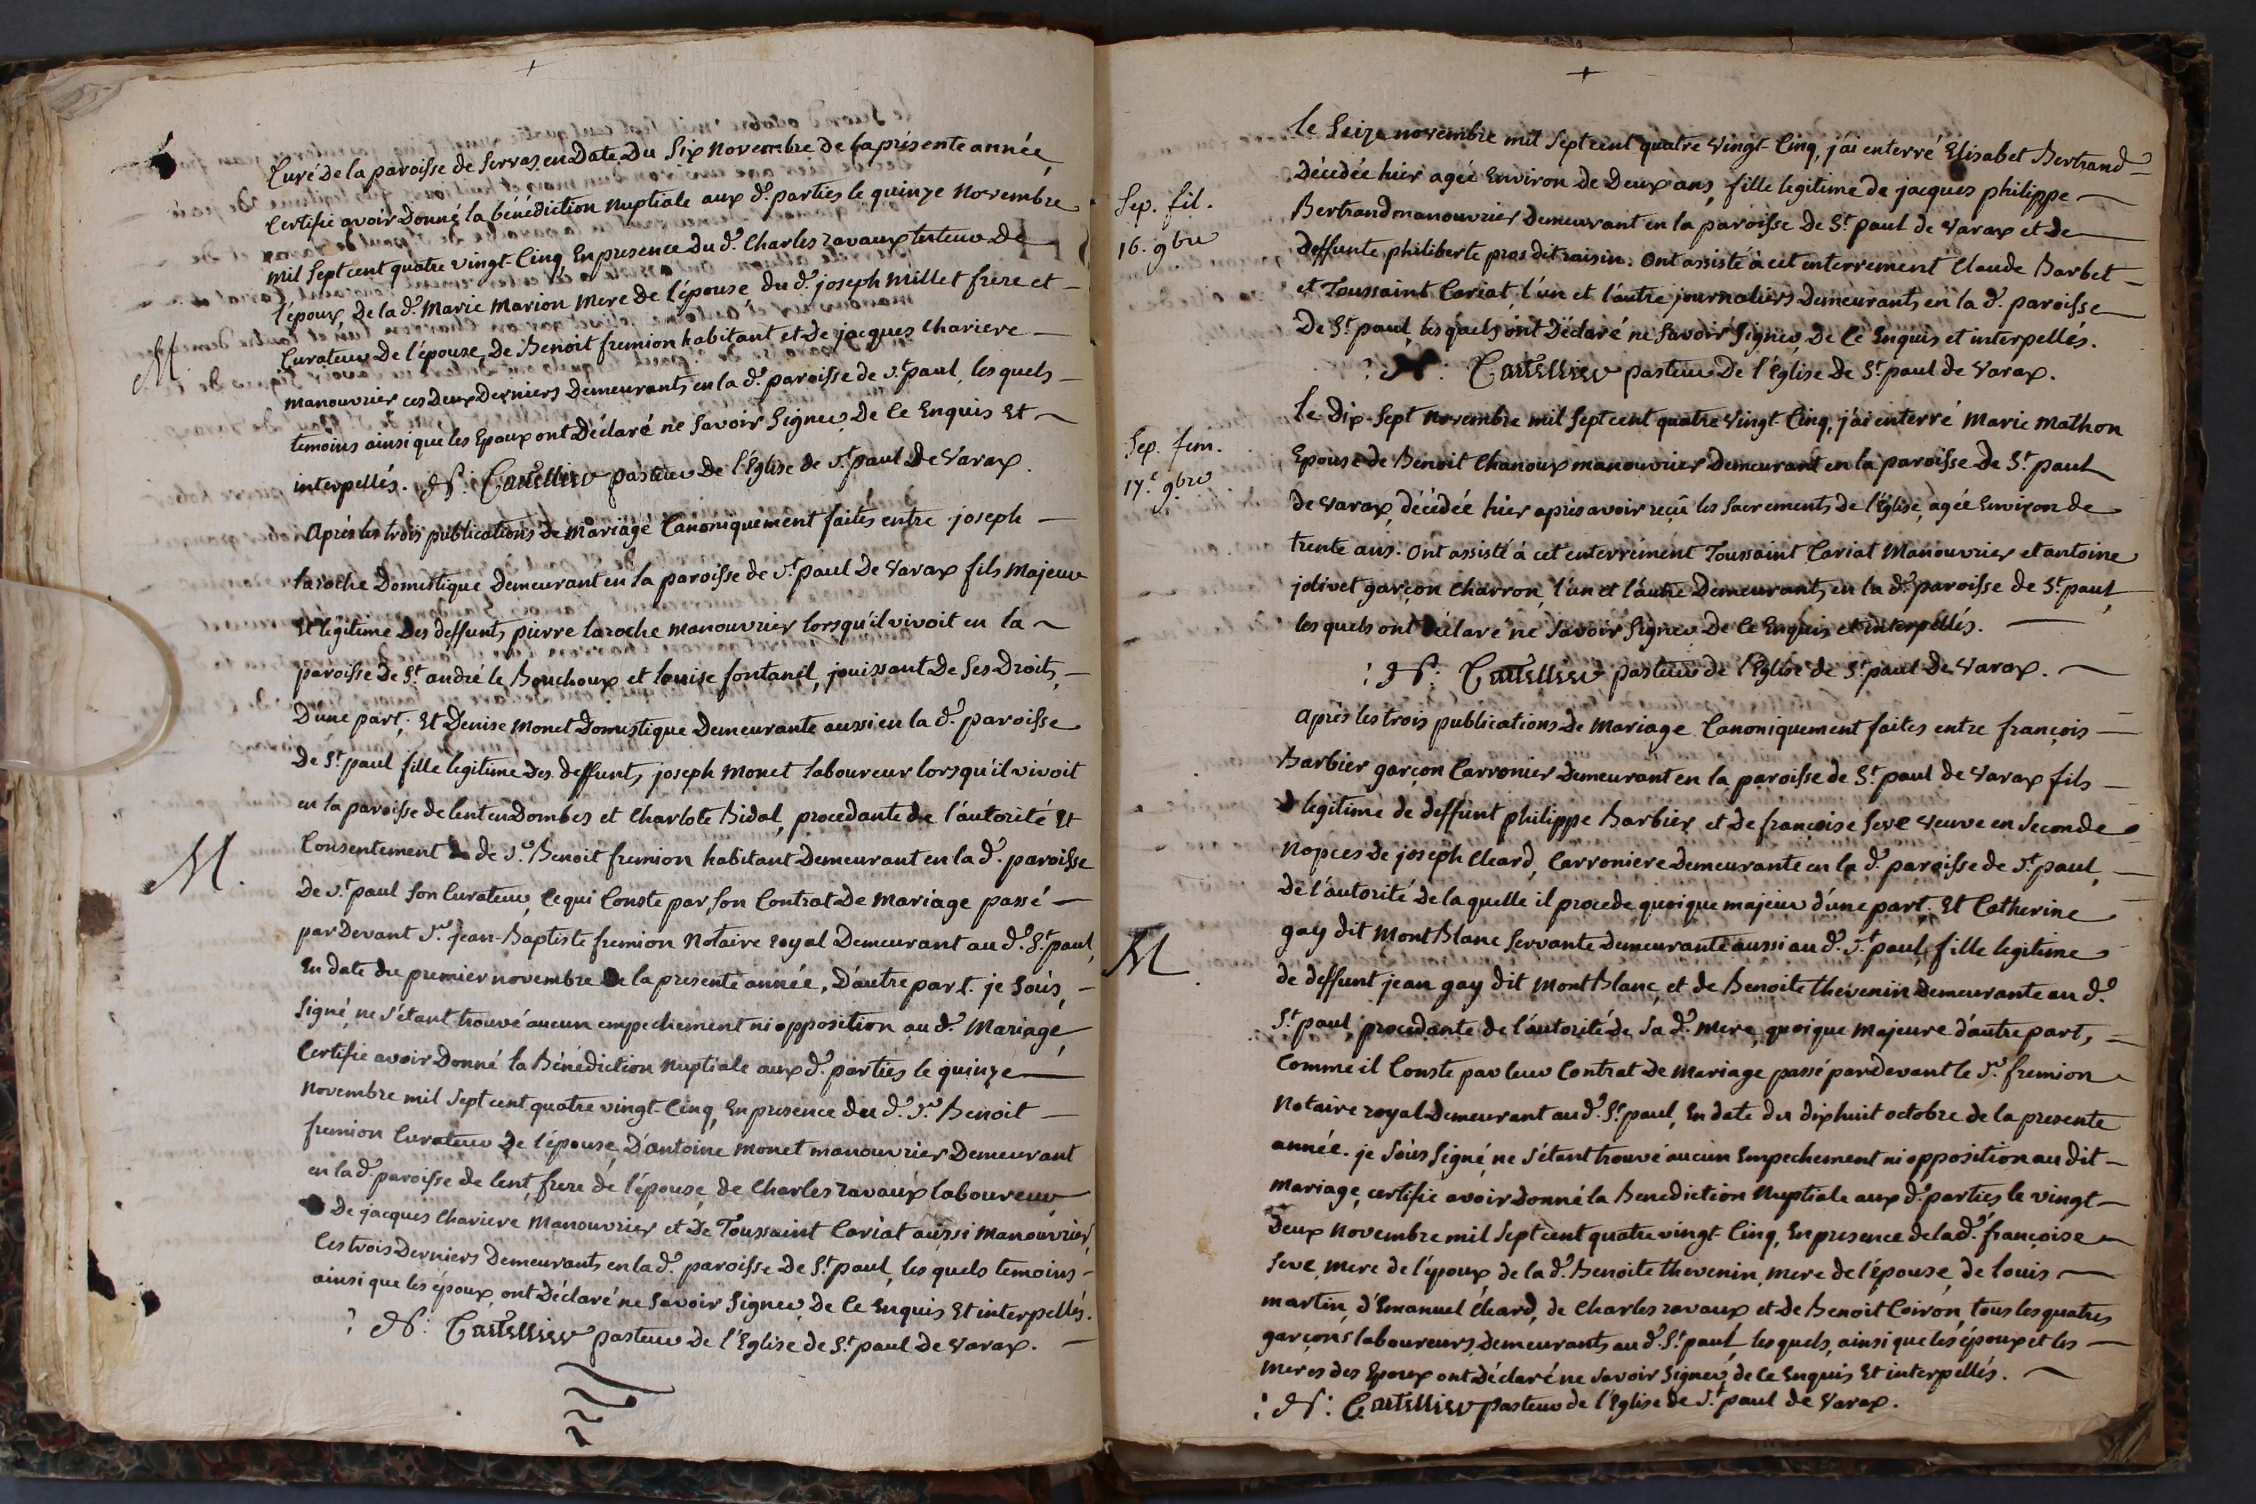 Curé de la paroisse de Servas, en Date Du Six Novembre de la présente année,
Certifie avoir Donné la bénédiction nuptiale aux d.es parties le quinze Novembre
mil Sept cent quatre vingt-Cinq, En presence Du d.t Charles ravaux tuteur De
l'époux, De la d.e Marie Marion Mere de l'épouse, du d.t joseph Millet frere et
M.
Curateur De l'épouse, de Benoit fremion habitant et de jacques Chariere
manouvrier ces Deux Derniers Demeurants en la d.e paroisse de S.t paul, les quels
temoins ainsi que les Epoux ont Déclaré ne Savoir Signer, De Ce Enquis Et
interpellés. N: Cautellier pasteur de l'Eglise de S.t paul De Varax.
Après les trois publications De Mariage Canoniquement faites entre joseph
laroche Domestique Demeurant en la paroisse de S.t paul De Varax fils Majeur
Et légitime Des deffunts pierre laroche manouvrier lorsqu'il vivoit en la
paroisse de S.t andré le Bouchoux et louise fontanel, jouissant De Ses Droits,
D'une part; Et Denise Monet Domestique Demeurante aussi en la d.e paroisse
De S.t paul fille legitime Des deffunts joseph Monet laboureur lorsqu'il vivoit
en la paroisse de lent en Dombes et Charlote Bidal, procedante de l'autorité Et
M.
Consentement de S.r Benoit fremion habitant Demeurant en la d.e paroisse
De S.t paul Son Curateur, Ce qui Conste par Son Contrat De Mariage passé
par Devant S.r jean-Baptiste fremion Notaire royal Demeurant au d.t S.t paul,
En date du premier novembre de la presente année, D'autre part. je Sous,
Signé, ne S'étant trouvé aucun empechement ni opposition au d.t Mariage,
Certifie avoir Donné la Bénédiction Nuptiale aux d.es parties le quinze
Novembre mil Sept cent quatre vingt-Cinq, En presence du d.t S.r Benoit
fremion Curateur De l'épouse, D'antoine Monet manouvrier Demeurant
en la d.e paroisse de lent, frere de l'épouse, de Charles ravaux laboureur
De jacques Chariere Manouvrier et De Toussaint Cariat aussi Manouvrier,
Ces trois Derniers Demeurants en la d.e paroisse De S.t paul, les quels temoins
ainsi que les époux, ont Déclaré ne Savoir Signer, De Ce Enquis Et interpellés.
: N: Cautellier pasteur De l'Eglise de S.t paul De Varax.
le Seize novembre mil Sept cent quatre Vingt-Cinq, j'ai enterré Elisabet Bertrand
Sep. fil.
16. 9bre
Décédée hier agée Environ de Deux ans, fille legitime de jacques philippe
Bertrand manouvrier Demeurant en la paroisse De S.t paul de Varax et de
Deffunte philiberte pras dit raisin. Ont assisté à cet enterrement Claude Barbet
et Toussaint Cariat, l'un et l'autre journaliers Demeurants en la d.e paroisse
De S.t paul, les quels ont Déclaré ne Savoir Signer, De Ce Enquis et interpellés.
: N: Cautellier pasteur De l'Eglise De S.t paul de Varax.
Le Dix-Sept Novembre mil Sept cent quatre Vingt-Cinq, j'ai enterré Marie Mathon
Sep. fem.
17.e 9bre
Epouse de Benoit Chanoux manouvrier Demeurant en la paroisse De S.t paul
de Varax, décédée hier après avoir reçu les Sacrements de l'Eglise, agée Environ de
trente ans. Ont assisté à cet enterrement Toussaint Cariat Manouvrier et antoine
jolivet garçon Charron, l'un et l'autre Demeurants en la d.e paroisse de S.t paul,
les quels ont Déclaré ne Savoir Signer De Ce Enquis et interpellés.
: N: Cautellier pasteur de l'Eglise de S.t paul De Varax.
Après les trois publications De Mariage Canoniquement faites entre françois
Barbier garçon Carronier Demeurant en la paroisse de S.t paul de Varax fils
legitime de deffunt philippe Barbier et de françoise Seve veuve en Seconde
Nopces de joseph Cheard, Carroniere Demeurante en la d.e paroisse de S.t paul,
De l'autorité de la quelle il procede quoique majeur d'une part. Et Catherine
M
gay dit Mont Blanc Servante Demeurante aussi au d.t S.t paul, fille legitime
de deffunt jean gay dit Mont Blanc, et de Benoite thevenin Demeurante au d.t
S.t paul, procedante de l'autorité de Sa d.e Mere, quoique Majeure d'autre part,
Comme il Conste par leur Contrat De Mariage passé pardevant le S.r fremion
Notaire royal Demeurant au d.t S.t paul, En date du dixhuit octobre de la presente
année. je Sous Signé, ne S'étant trouvé aucun Empechement ni opposition au dit
Mariage, certifie avoir Donné la Benediction Nuptiale aux d.es parties le vingt
Deux Novembre mil Sept cent quatre vingt-Cinq, En presence de la d.e françoise
Seve, mere de l'époux, de la d.e Benoite thevenin, mere de l'épouse, de louis
martin, d'Emanuel Chard, de Charles ravaux et de Benoit Coiron, tous les quatres
garçons laboureurs, Demeurants au d.t S.t paul, les quels, ainsi que les époux et les
meres des Epoux ont Déclaré ne Savoir Signer, de Ce Enquis Et interpellés.
: N: Cautellier pasteur de l'Eglise de S.t paul de Varax.